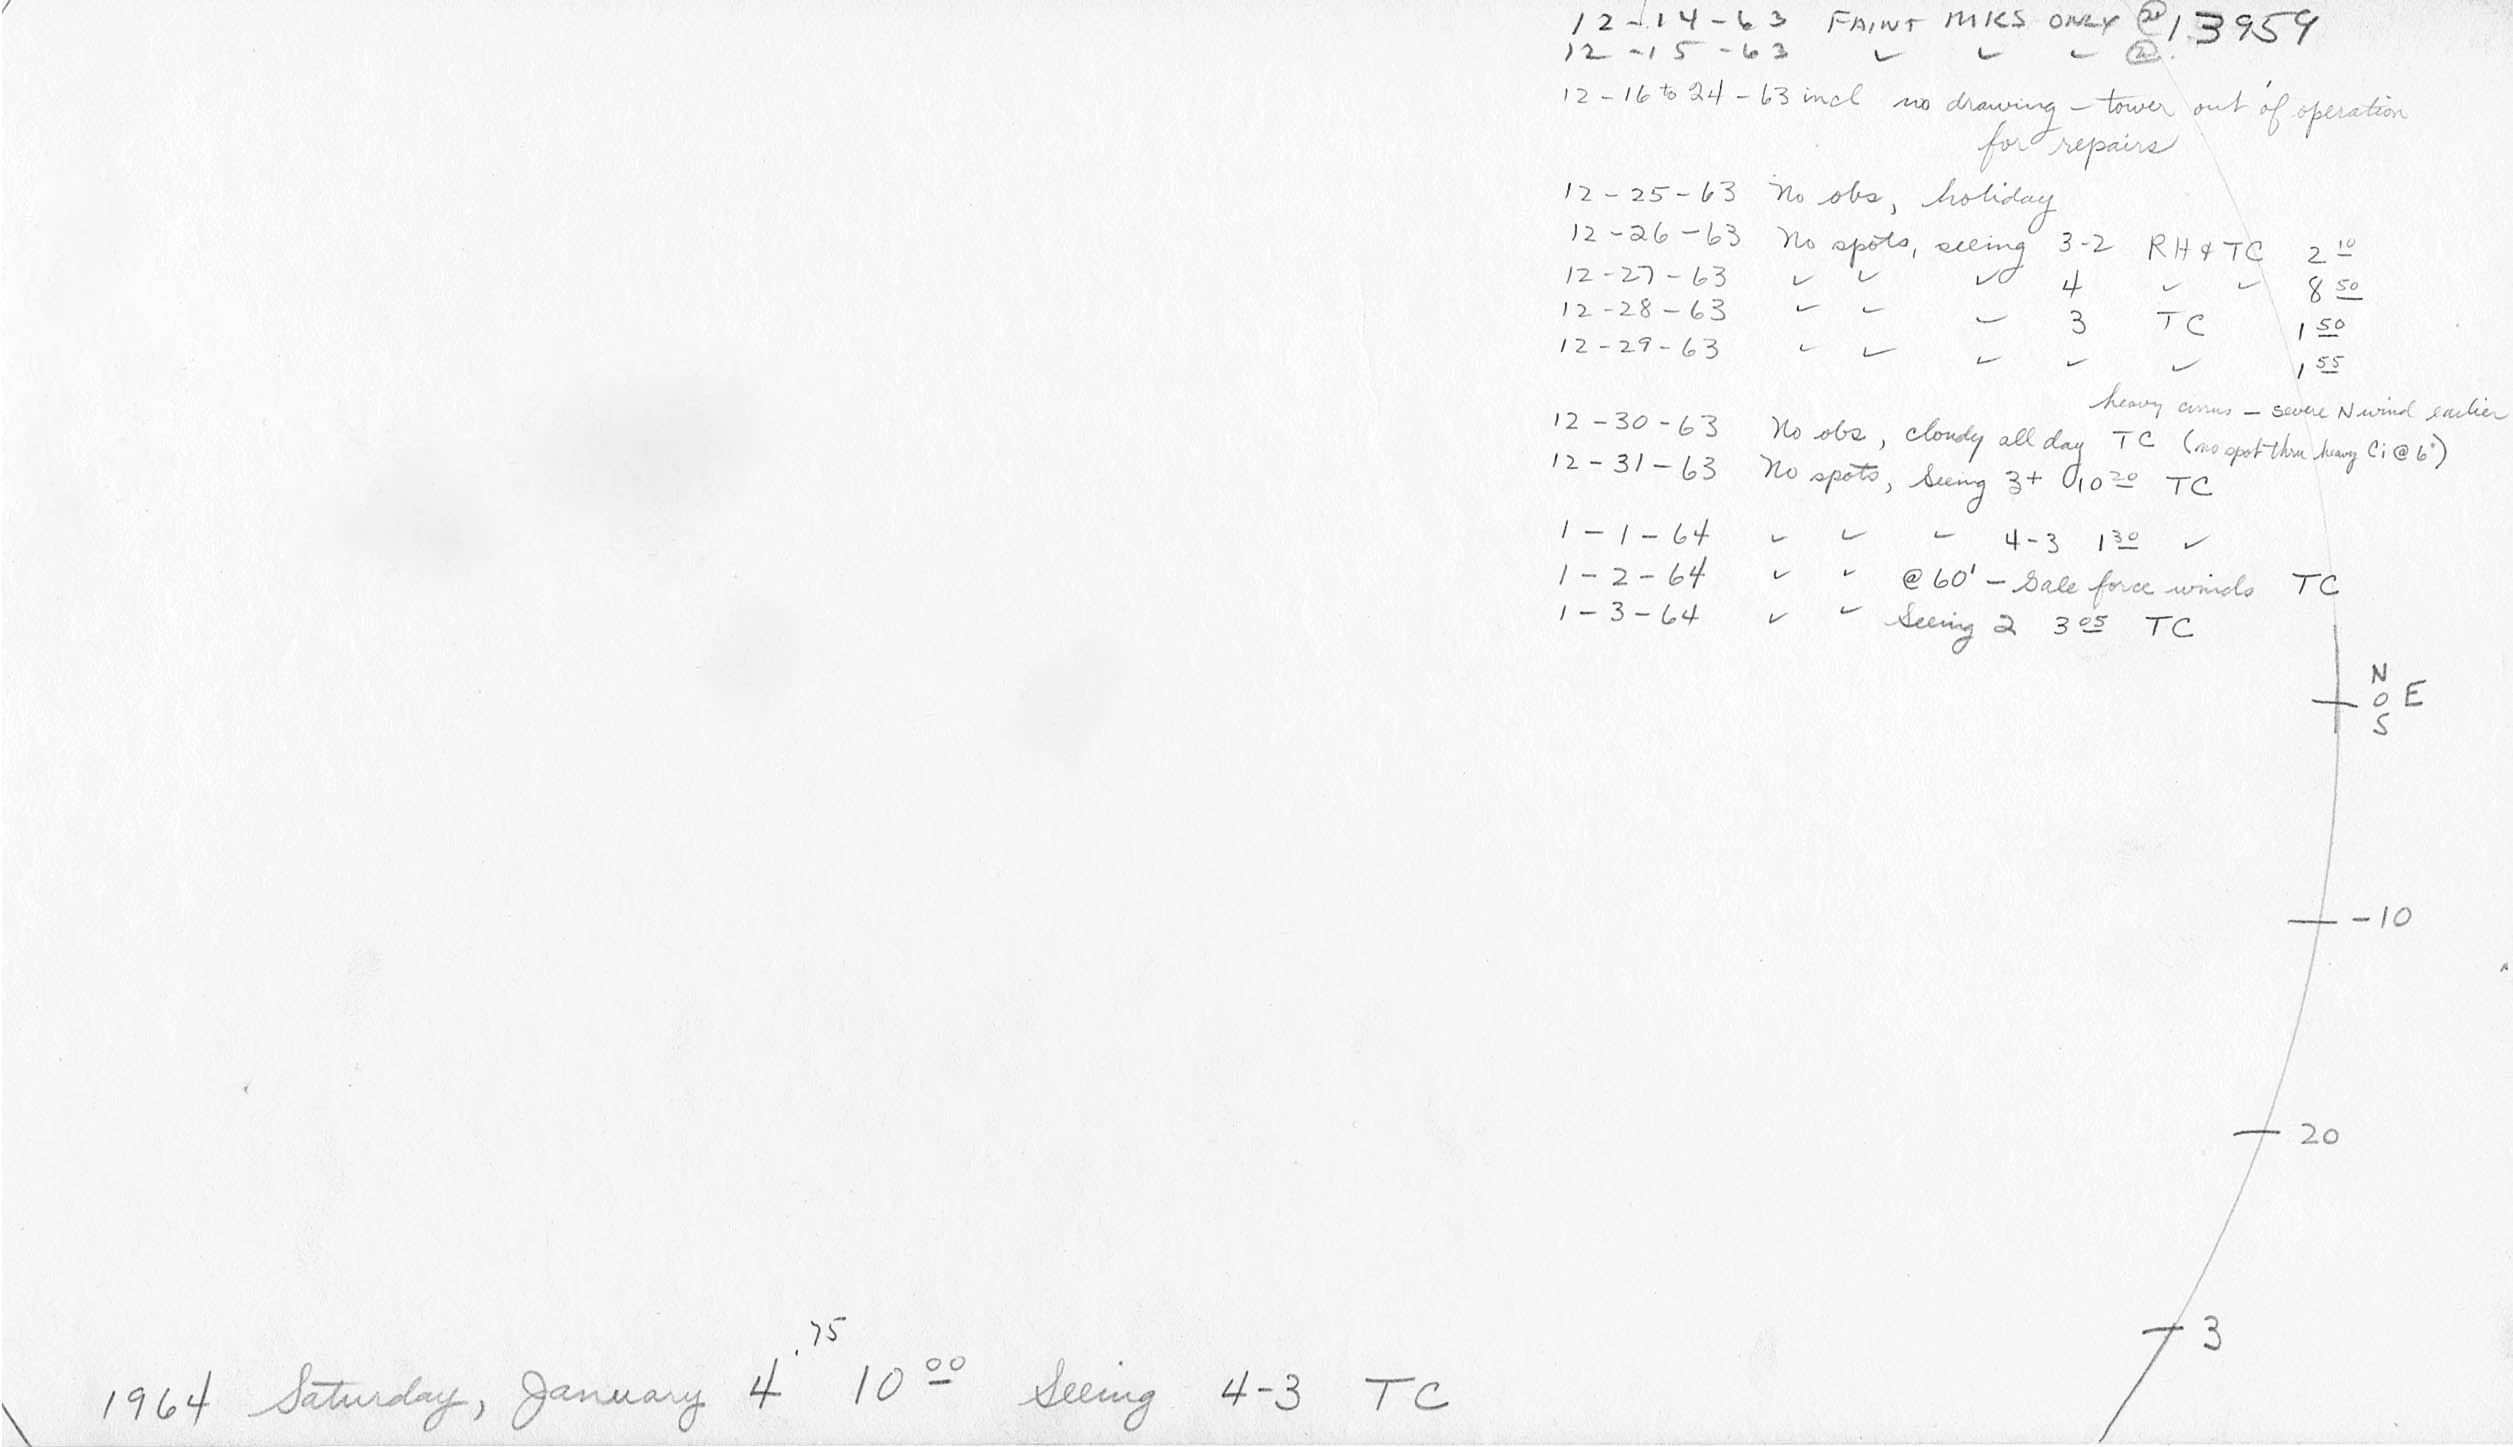 12-14-63 FAINT MKS ONLY @ 13959
12-15-63 ✓ ✓ ✓ @
12-16 to 24-63 incl no drawing - tower out of operation
for repairs
12-25-63 No obs, holiday
12-26-63 No spots, seeing 3-2 RH & TC 2 10
12-27-63 ✓ ✓ ✓ 4 ✓ ✓ 8 50
12-28-63 ✓ ✓ ✓ 3 TC 1 50
12-29-63 ✓ ✓ ✓ ✓ ✓ 1 55
heavy cirrus - severe N wind earlier
12-30-63 No obs, cloudy all day TC (no spot thru heavy Ci @ 6")
12-31-63 No spots, Seeing 3+ 10 20 TC
1-1-64 ✓ ✓ ✓ 4-3 1 30 ✓
1-2-64 ✓ ✓ @ 60' - Gale force winds TC
1-3-64 ✓ ✓ Seeing 2 3 05 TC
N
0 E
S
-10
20
3
1964 Saturday, January 4 .75 10 00 Seeing 4-3 TC